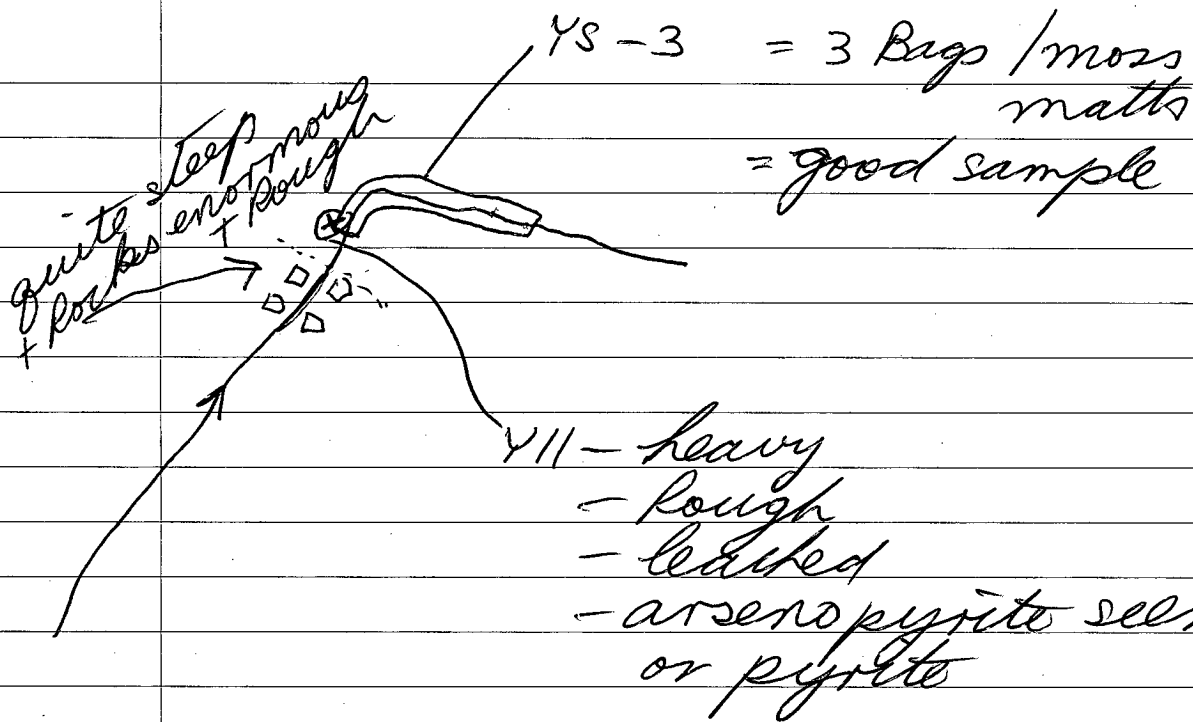 YS-3 = 3 Bags / moss
matts
= good sample
quite steep
+ Rocks enormous
+ Rough
Y11 - heavy
- Rough
- leached
- arsenopyrite seen
or pyrite